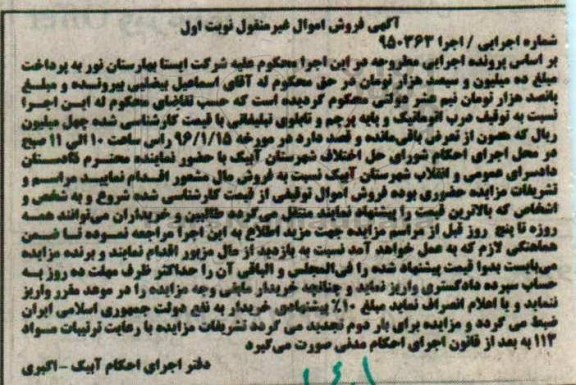 آگهی فروش اموال غیرمنقول نوبت اول
شماره اجرایی / اجرا ۹۵۰۳۶۳
بر اساس پرونده اجرایی مطروحه در این اجرا محکوم علیه شرکت ایستا بهارستان نور به پرداخت
مبلغ ده میلیون و سیصد هزار تومان در حق محکوم له آقای اسماعیل بیضایی بیرونده و مبلغ
پانصد هزار تومان نیم عشر دولتی محکوم گردیده است که حسب تقاضای محکوم له این اجرا
نسبت به توقیف درب اتوماتیک و پایه پرچم و تابلوی تبلیغاتی با قیمت کارشناسی شده چهل میلیون
ریال که مصون از تعرض باقی‌مانده و قصد دارد در مورخه ۹۶/۱/۱۵ راس ساعت ۱۰ الی ۱۱ صبح
در محل اجرای احکام شورای حل اختلاف شهرستان آبیک با حضور نماینده محترم دادستان
دادسرای عمومی و انقلاب شهرستان آبیک نسبت به فروش مال مشعور اقدام نمایید مراسم و
تشریفات مزایده حضوری بوده فروش اموال توقیفی از قیمت کارشناسی شده شروع و به شخص و
اشخاص که بالاترین قیمت را پیشنهاد نمایند منتقل می‌گردد طالبین و خریداران می‌توانند همه
روزه تا پنج روز قبل از مراسم مزایده جهت مزید اطلاع به این اجرا مراجعه نموده تا ضمن
هماهنگی لازم که به عمل خواهد آمد نسبت به بازدید از مال مزبور اقدام نمایند و برنده مزایده
می‌بایست بدوا قیمت پیشنهاد شده را فی‌المجلس و الباقی آن را حداکثر ظرف مهلت ده روز به
حساب سپرده دادگستری واریز نماید و چنانچه خریدار مابقی وجه مزایده را در موعد مقرر واریز
ننماید و یا اعلام انصراف نماید مبلغ ۱۰٪ پیشنهادی خریدار به نفع دولت جمهوری اسلامی ایران
ضبط می گردد و مزایده برای بار دوم تجدید می گردد تشریفات مزایده با رعایت ترتیبات مواد
۱۱۳ به بعد از قانون اجرای احکام مدنی صورت می‌گیرد
دفتر اجرای احکام آبیک -اکبری